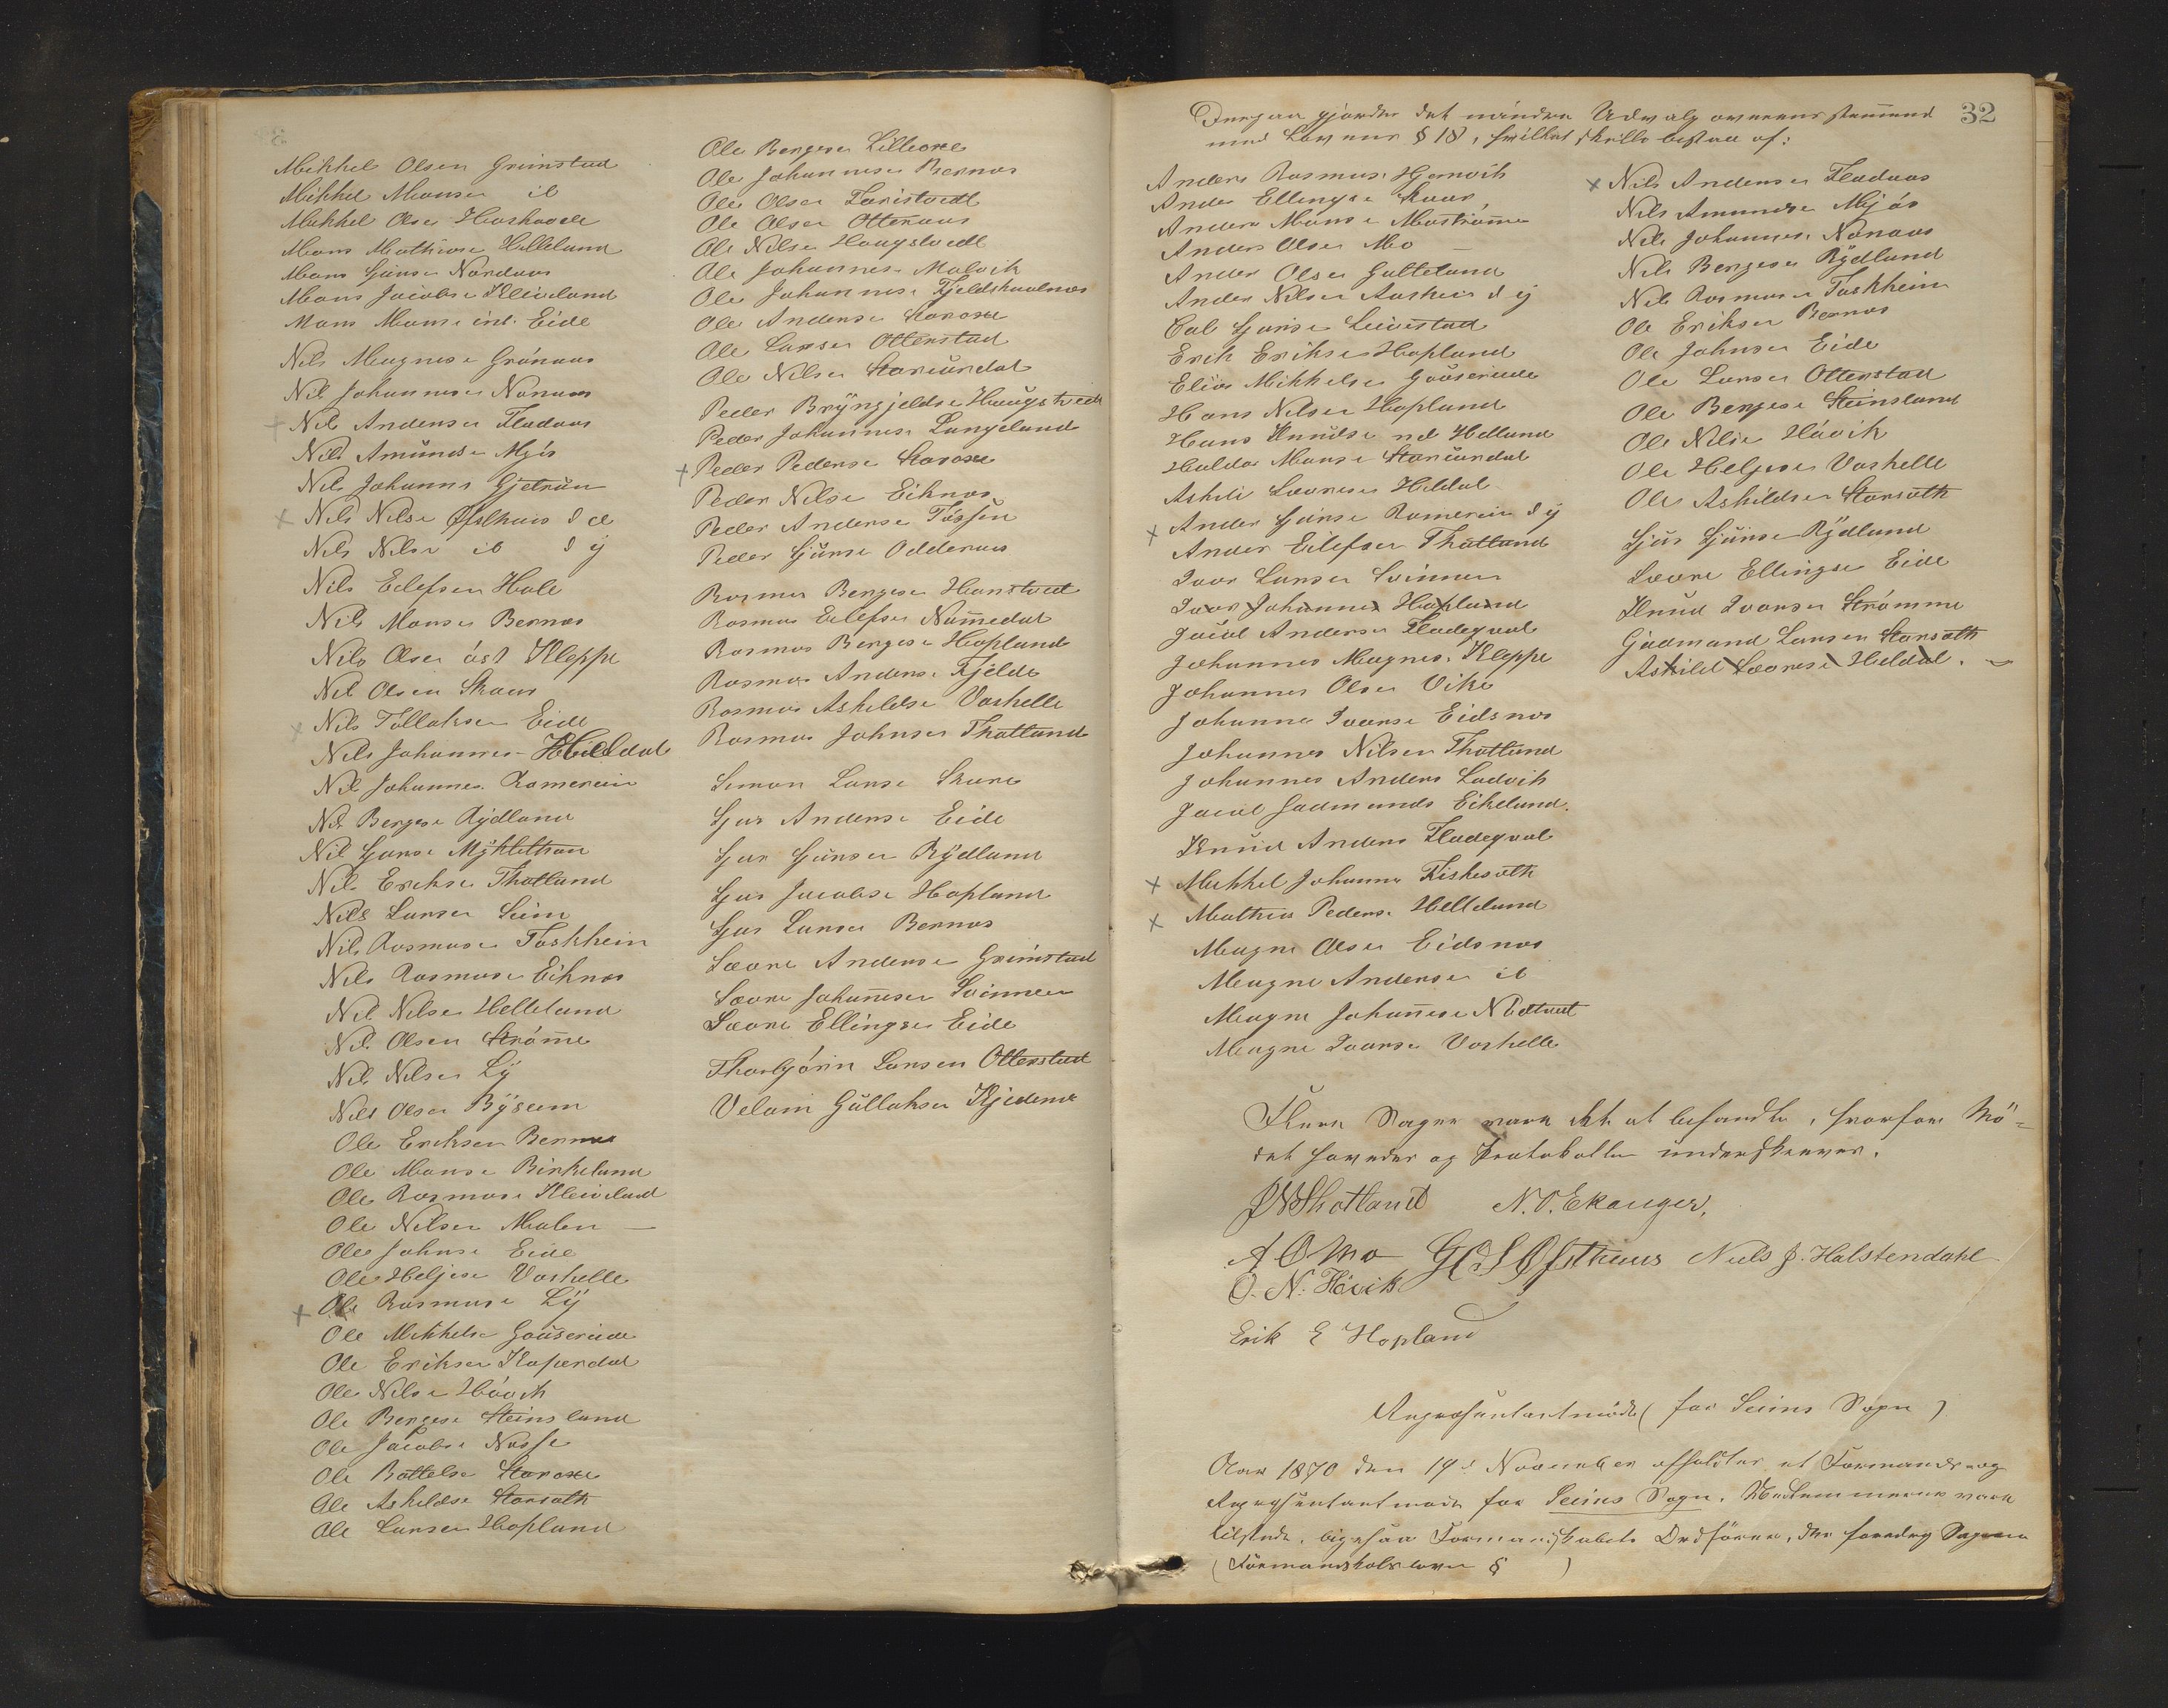 Mikkel Olsen Grimstad
Mikkel Monsen ib
Mikkel Olse
Mons Mathiase Helleland
Mons Sjurse Nordaas
Mons Jacobse Kleiveland
Mons Monse ind. Eide
Nils Magnese Grönaas
Nils Johannese Nonaas
Nils Andense Fladaas
Nils Amundse Mjös
Nils Johanns Gjetrün
Nils Nilse Öfsthuus d æ
Nils Nilse ib d ÿ
Nils Eilefsen Hole
Nils Monse Bernes
Nils Olsen öst Kleppe
Nils Olsen Skaar
Nils Tollaksen Eide
Nils Johannes Helldal
Nils Johannes. Romerein
Nils Bergese Rÿdland
Nils Sjurse Mÿklethun
Nils Erikse Thotland
Nils Larsen Seim
Nils Rasmuse Toskhein
Nils Rasmuse Eiknes
Nils Nilse Helleland
Nils Olsen Strömme
Nils Nilsen Lÿ
Nils Olsen Bÿseim
Ole Eriksen Bernes
Ole Monse Birkeland
Ole Rasmuse Kleiveland
Ole Nilsen Malen —
Ole Johnse Eide
Ole Heljese Vashelle
Ole Rasmuse Lÿ
Ole Mikkelse Gouserude
Ole Eriksen Kaperdal
Ole Nilse Hövik
Ole Bergese Steinsland
Ole Jacobse Nesse
Ole Bottelse Storoxe
Ole Askildse Storsæth
Ole Larsen Hopland
Ole Bergese Lilleoxe
Ole Johannese Bernes
Ole Olsen
Ole Olsen Otteraas
Ole Nilse Hougstvedt
Ole Johannese Molvik
Ole Johannese Fjeldskaalnes
Ole Andense Storoxe
Ole Larsen Ottenstad
Ole Nilse Storeurdal
Peder Brÿngjeldse Haugstvedt
Peder Johannese Langeland
Peder Pederse Storoxe
Peder Nilse Eiknes
Peder Anderse Tösse
Peder Sjurse Odderaas
Rasmus Bergese Hanstved
Rasmus Eilefsen Nommedal
Rasmus Bergese Hopland
Rasmus Anderse Fjelde
Rasmus Askildse Vashelle
Rasmus Johnsen Thotland
Simon Larse Skare
Sjur Anderse Eide
Sjur Sjursen Rÿdland
Sjur Jacobse Hopland
Sjur Larsen Bernes
Sævre Anderse Grimstad
Sævre Johannesen Soinnen
Sævre Ellingse Eide
Thorbjörn Larsen Ottenstad
Velom Gullaksen Kjedene
32
Derpaa gjordes det mindre Udvalg overensstemmend
med Lovens § 18, hvilket skulle bestaa af:
Anders Rasmus. Hjervik
Anders Ellingse Skaar,
Anders Monse Mostrøm
Anders Olsen Mo —
Anders Olsen Gulteland
Anders Nilsen Aasheim d ÿ
Col Sjurse Leivestad
Erik Eriksen Hopland
Elias Mikkelse Gouserude
Hans Nilsen Hopland
Hans Knudse nd Helland
Haldor Monse Storeurdal
Askild Sævrese Heldal
Anders Sjurse Romerein d ÿ
Anders Eilefsen Thotland
Ivar Larsen Soinnen
Ivar Johannes Hopland
Jacob Anderse Fladeqval
Johannes Magnes. Kleppe
Johannes Olsen Vike
Johannes Ivarse Eidsnes
Johannes Nilsen Thotland
Johannes Anders Ladvik
Jacob Gudmunds Eikeland.
Knud Anders Fladeqval
Mikkel Johanns Fiskesæth
Mathias Pederse Helleland
Magne Olsen Eidsnes
Magne Andersen ib
Magne Johannese Nedtvet
Magne Ivarse Vashelle
Nils Andense Fladaas
Nils Amundse Mjös
Nils Johannese Nonaas
Nils Bergese Rÿdland
Nils Rasmuse Toskhein
Ole Eriksen Bernes
Ole Johnsen Eide
Ole Larsen Ottenstad
Ole Bergese Steinsland
Ole Nilse Hövik
Ole Heljese Vashelle
Ole Askildsen Storsæth
Sjur Sjurse Rÿdland
Sævre Ellingse Eide
Knud Ivarsen Strömme
Gudmund Larsen Storsæth
Askild Sævrese Heldal.
Flere Sager vare ikke at behandle, hvorfor Mö=
det hævedes og Protokollen underskreves.
J N Thotland N. O. Ekanger,
A O Mo G O S Öfsthuus Niels J. Halstendahl
O. N. Hövik
Erik E Hopland
Repræsentantmöde (for Seims Sogn)
Aar 1870 den 19de November afholdtes et Formands- og
Repræsentantmöde for Seims Sogn. Medlemmerne vare
tilstede, ligesaa Formandskabets Ordförer, der foredrog Sagerne
(Formandskabsloven § )